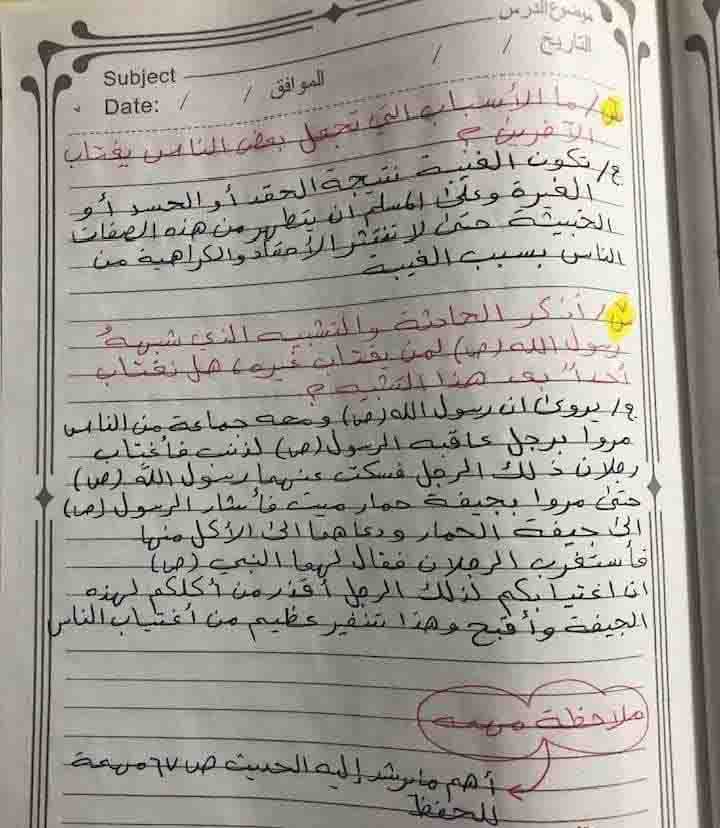 موضوع الدرس
التاريخ / /
Subject
Date: / / الموافق
س/ ما الأسباب التي تجعل بعض الناس يغتاب
الآخرين ؟
ج/ تكون الغيبة نتيجة الحقد أو الحسد أو
الغيرة وعلى المسلم ان يتطهر من هذه الصفات
الخبيثة حتى لا تنتشر الأحقاد والكراهية من
الناس بسبب الغيبة
س/ أذكر الحادثة والتشبيه الذي شبهه
رسول الله (ص) لمن يغتاب غيره، هل تغتاب
أحداً بعد هذا التشبيه ؟
ج/ يروى ان رسول الله (ص) ومعه جماعة من الناس
مروا برجل عاقبه الرسول (ص) لذنب فأغتاب
رجلان ذلك الرجل فسكت عنهما رسول الله (ص)
حتى مروا بجيفة حمار ميت فأشار الرسول (ص)
الى جيفة الحمار ودعاهما الى الأكل منها
فأستغرب الرجلان فقال لهما النبي (ص)
ان اغتيابكم لذلك الرجل أقذر من أكلكم لهذه
الجيفة وأقبح وهذا تنفير عظيم من أغتياب الناس
ملاحظة مهمة
أهم ما يرشد إليه الحديث ص ٦٧ مهمة
للحفظ